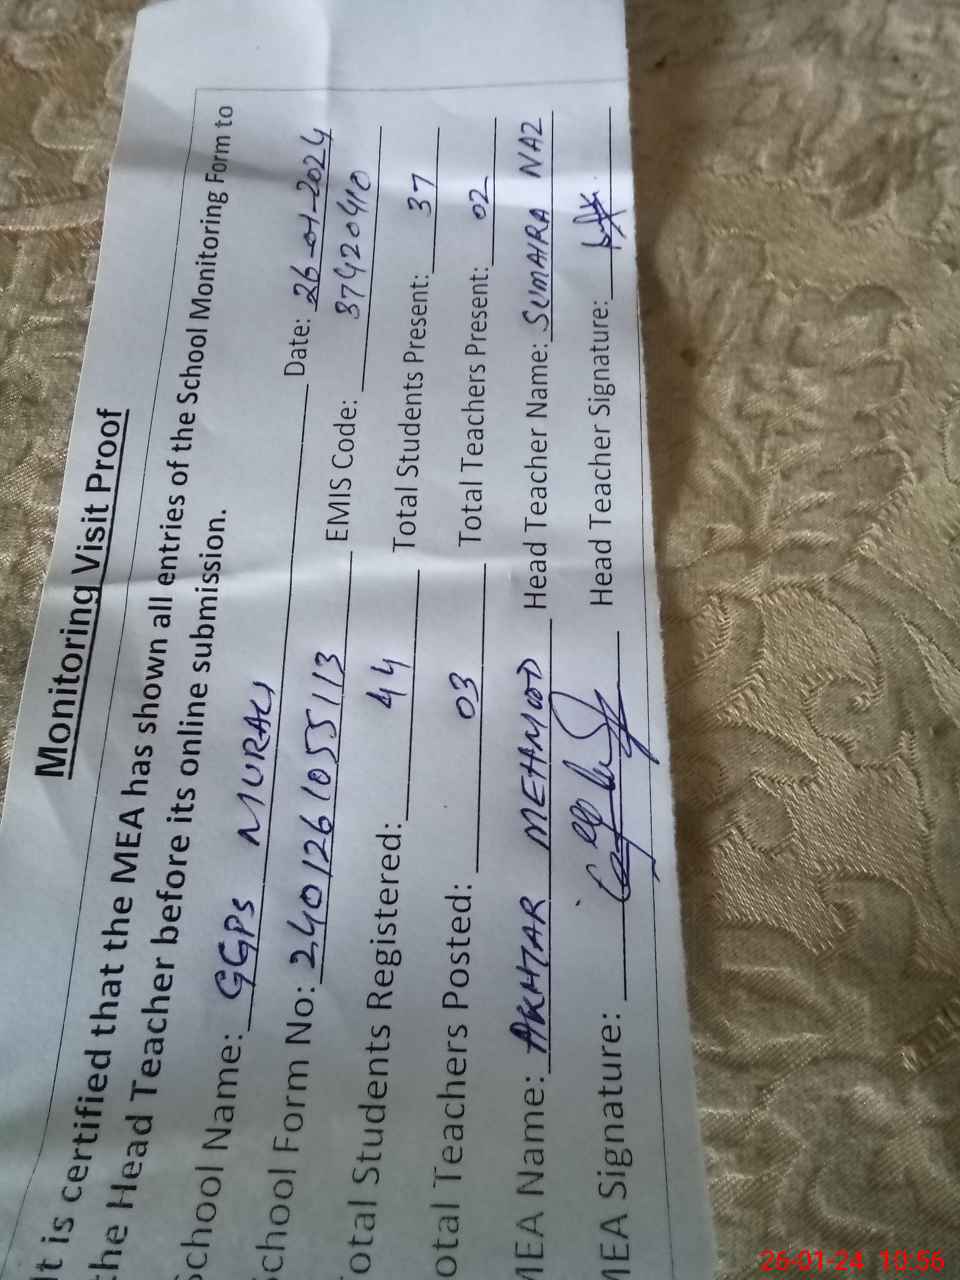 Monitoring Visit Proof
It is certified that the MEA has shown all entries of the School Monitoring Form to
the Head Teacher before its online submission.
School Name: GGPS MURALI Date: 26-01-2024
School Form No: 2401261055113 EMIS Code: 37420410
Total Students Registered: 44 Total Students Present: 37
Total Teachers Posted: 03 Total Teachers Present: 02
MEA Name: AKHTAR MEHAMOOD Head Teacher Name: SUMAIRA NAZ
MEA Signature: Head Teacher Signature:
26-01-24 10:56